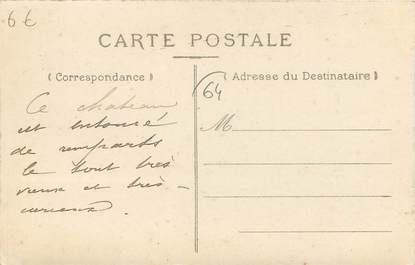 6€
CARTE POSTALE
(Correspondance)
(Adresse du Destinataire)
64
Ce chateau
est entouré
de remparts
le tout très
vieux et très
curieux.
M